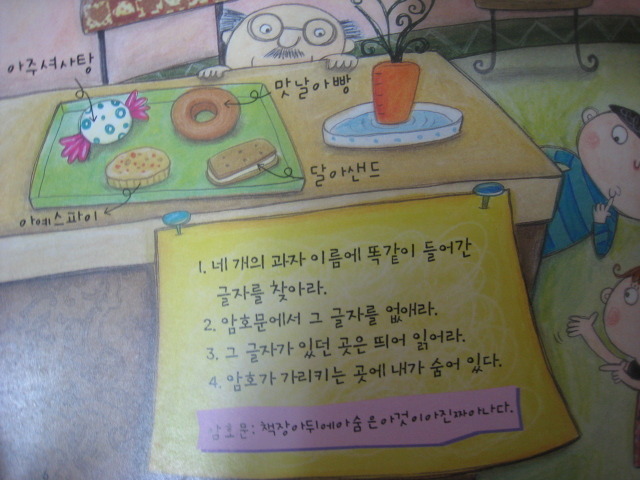 아주셔사탕
맛날아빵
달아샌드
아예스파이
1. 네 개의 과자 이름에 똑같이 들어간
글자를 찾아라.
2. 암호문에서 그 글자를 없애라.
3. 그 글자가 있던 곳은 띄어 읽어라.
4. 암호가 가리키는 곳에 내가 숨어 있다.
암호문: 책장아뒤에아숨은아것이아진짜아나다.